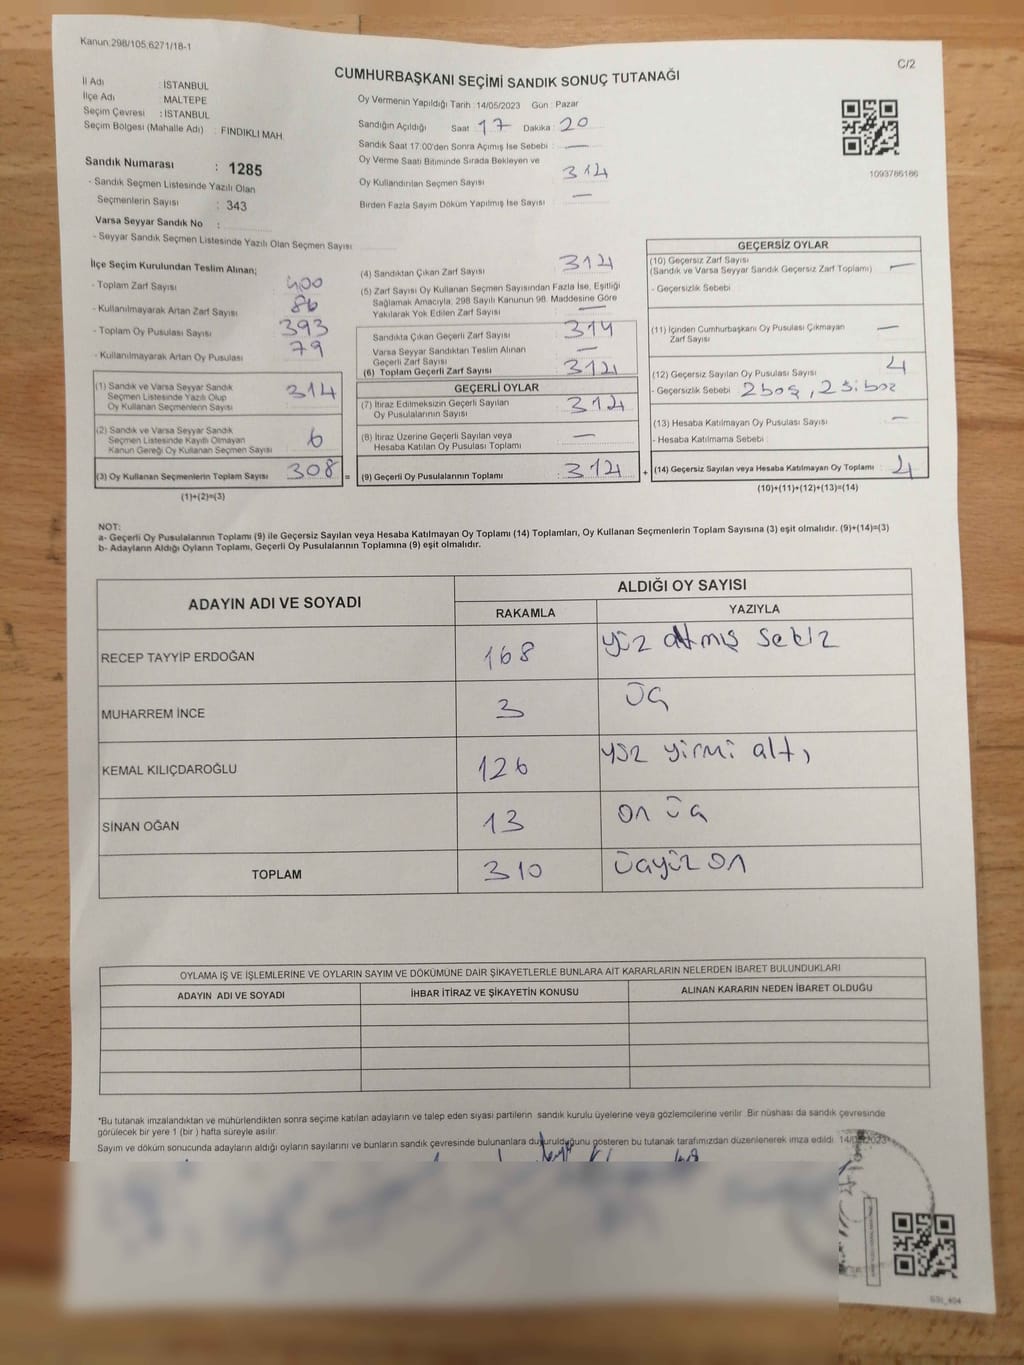 Kanun:298/105,6271/18-1
C/2
CUMHURBAŞKANI SEÇİMİ SANDIK SONUÇ TUTANAĞI
İl Adı : İSTANBUL
İlçe Adı : MALTEPE
Seçim Çevresi : İSTANBUL
Seçim Bölgesi (Mahalle Adı) : FINDIKLI MAH.
Sandık Numarası : 1285
- Sandık Seçmen Listesinde Yazılı Olan
Seçmenlerin Sayısı : 343
Varsa Seyyar Sandık No :
- Seyyar Sandık Seçmen Listesinde Yazılı Olan Seçmen Sayısı
Oy Vermenin Yapıldığı Tarih : 14/05/2023 Gün : Pazar
Sandığın Açıldığı Saat : 17 Dakika : 20
Sandık Saat 17:00'den Sonra Açımış İse Sebebi : —
Oy Verme Saati Bitiminde Sırada Bekleyen ve
Oy Kullandırılan Seçmen Sayısı 314
Birden Fazla Sayım Döküm Yapılmış İse Sayısı —
1093766186
İlçe Seçim Kurulundan Teslim Alınan;
- Toplam Zarf Sayısı 400
- Kullanılmayarak Artan Zarf Sayısı 86
- Toplam Oy Pusulası Sayısı 393
- Kullanılmayarak Artan Oy Pusulası 79
(1) Sandık ve Varsa Seyyar Sandık
Seçmen Listesinde Yazılı Olup
Oy Kullanan Seçmenlerin Sayısı 314
(2) Sandık ve Varsa Seyyar Sandık
Seçmen Listesinde Kayıtlı Olmayan
Kanun Gereği Oy Kullanan Seçmen Sayısı 6
(3) Oy Kullanan Seçmenlerin Toplam Sayısı 308 =
(1)+(2)=(3)
(4) Sandıktan Çıkan Zarf Sayısı 314
(5) Zarf Sayısı Oy Kullanan Seçmen Sayısından Fazla İse, Eşitliği
Sağlamak Amacıyla, 298 Sayılı Kanunun 98. Maddesine Göre
Yakılarak Yok Edilen Zarf Sayısı —
Sandıkta Çıkan Geçerli Zarf Sayısı 314
Varsa Seyyar Sandıktan Teslim Alınan
Geçerli Zarf Sayısı —
(6) Toplam Geçerli Zarf Sayısı 314
GEÇERLİ OYLAR
(7) İtiraz Edilmeksizin Geçerli Sayılan
Oy Pusulalarının Sayısı 314
(8) İtiraz Üzerine Geçerli Sayılan veya
Hesaba Katılan Oy Pusulası Toplamı —
(9) Geçerli Oy Pusulalarının Toplamı 314 +
GEÇERSİZ OYLAR
(10) Geçersiz Zarf Sayısı
(Sandık ve Varsa Seyyar Sandık Geçersiz Zarf Toplamı) —
- Geçersizlik Sebebi :
(11) İçinden Cumhurbaşkanı Oy Pusulası Çıkmayan
Zarf Sayısı —
(12) Geçersiz Sayılan Oy Pusulası Sayısı 4
- Geçersizlik Sebebi : 2 boş, 2
(13) Hesaba Katılmayan Oy Pusulası Sayısı —
- Hesaba Katılmama Sebebi :
(14) Geçersiz Sayılan veya Hesaba Katılmayan Oy Toplamı : 4
(10)+(11)+(12)+(13)=(14)
NOT:
a- Geçerli Oy Pusulalarının Toplamı (9) ile Geçersiz Sayılan veya Hesaba Katılmayan Oy Toplamı (14) Toplamları, Oy Kullanan Seçmenlerin Toplam Sayısına (3) eşit olmalıdır. (9)+(14)=(3)
b- Adayların Aldığı Oyların Toplamı, Geçerli Oy Pusulalarının Toplamına (9) eşit olmalıdır.
ADAYIN ADI VE SOYADI
ALDIĞI OY SAYISI
RAKAMLA YAZIYLA
RECEP TAYYİP ERDOĞAN 168 yüz atmış sekiz
MUHARREM İNCE 3 üç
KEMAL KILIÇDAROĞLU 126 yüz yirmi altı
SİNAN OĞAN 13 on üç
TOPLAM 310 üçyüz on
OYLAMA İŞ VE İŞLEMLERİNE VE OYLARIN SAYIM VE DÖKÜMÜNE DAİR ŞİKAYETLERLE BUNLARA AİT KARARLARIN NELERDEN İBARET BULUNDUKLARI
ADAYIN ADI VE SOYADI İHBAR İTİRAZ VE ŞİKAYETİN KONUSU ALINAN KARARIN NEDEN İBARET OLDUĞU
*Bu tutanak imzalandıktan ve mühürlendikten sonra seçime katılan adayların ve talep eden siyasi partilerin sandık kurulu üyelerine veya gözlemcilerine verilir. Bir nüshası da sandık çevresinde
görülecek bir yere 1 (bir ) hafta süreyle asılır.
Sayım ve döküm sonucunda adayların aldığı oyların sayılarını ve bunların sandık çevresinde bulunanlara duyurulduğunu gösteren bu tutanak tarafımızdan düzenlenerek imza edildi. 14/05/2023